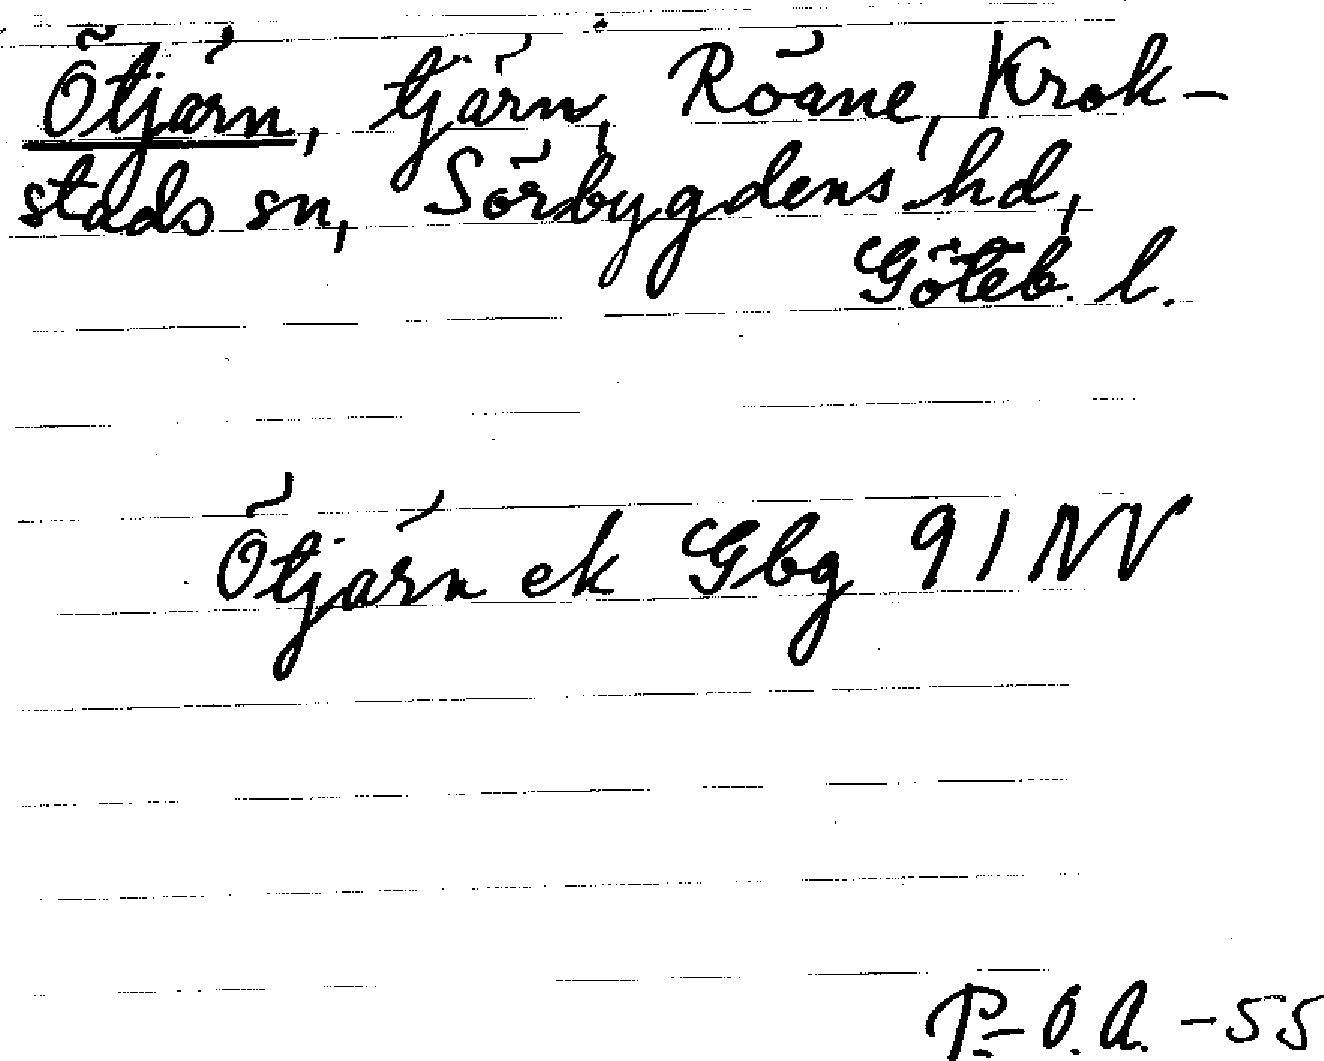 Ötjärn, tjärn, Röane, Krok-
stads sn, Sörbygdens hd,
Göteb. l.
Ötjärn ek Gbg 91 NV
P-O.A. -55